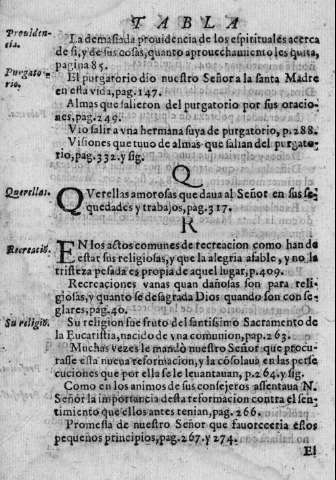 TABLA
Prouidencia.
La demasiada prouidencia de los espirituales acerca
de si, y de sus cosas, quanto aprouechamiento les quita,
pagina 85.
Purgatorio.
El purgatorio dio nuestro Señor a la santa Madre
en esta vida, pag. 147.
Almas que salieron del purgatorio por sus oracio-
nes, pag. 249.
Vio salir a vna hermana suya de purgatorio, p. 288.
Visiones que tuuo de almas que salian del purgato-
rio, pag. 332. y sig.
Q
Querellas.
QVerellas amorosas que daua al Señor en sus se-
quedades y trabajos, pag. 317.
R
Recreació.
EN los actos comunes de recreacion como han de
estar sus religiosas, y que la alegria afable, y no la
tristeza pesada es propia de aquel lugar, p. 409.
Recreaciones vanas quan dañosas son para reli-
giosas, y quanto se desagrada Dios quando son con se-
glares, pag. 40.
Su religió.
Su religion fue fruto del santissimo Sacramento de
la Eucaristia, nacido de vna comunion, pap. 263.
Muchas vezes le mandò nuestro Señor que procu-
rasse esta nueua reformacion, y la cósolaua en las perse-
cuciones que por ella se leuantauan, p. 264. y sig.
Como en los animos de sus consejeros assentaua N.
Señor la importancia desta reformacion contra el sen-
timiento que ellos antes tenian, pag. 266.
Promessa de nuestro Señor que fauoreceria estos
pequeños principios, pag. 267. y 274.
El